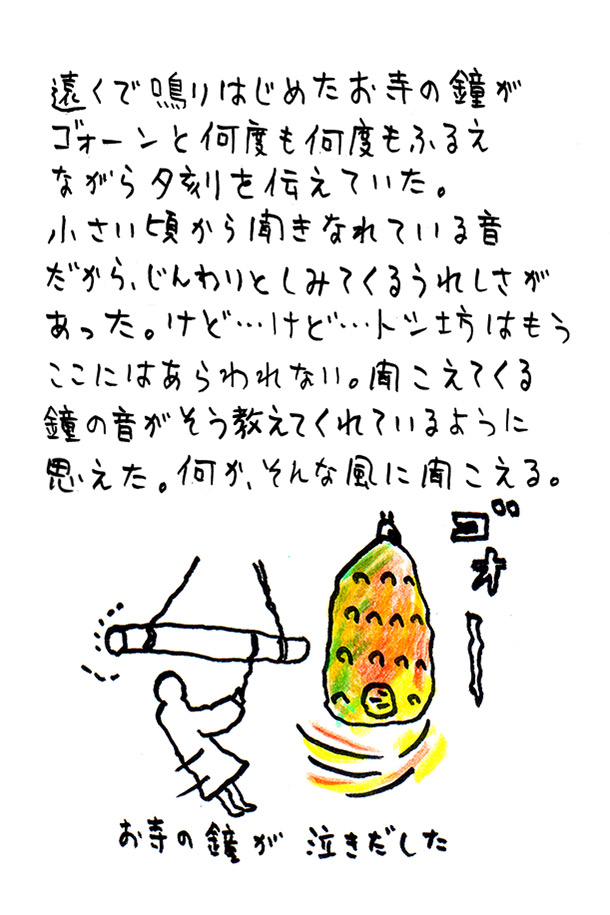 遠くで鳴りはじめたお寺の鐘が
ゴォーンと何度も何度もふるえ
ながら夕刻を伝えていた。
小さい頃から聞きなれている音
だから、じんわりとしみてくるうれしさが
あった。けど…けど…トシ坊はもう
ここにはあらわれない。聞こえてくる
鐘の音がそう教えてくれているように
思えた。何か、そんな風に聞こえる。
ゴォー
お寺の鐘が 泣きだした